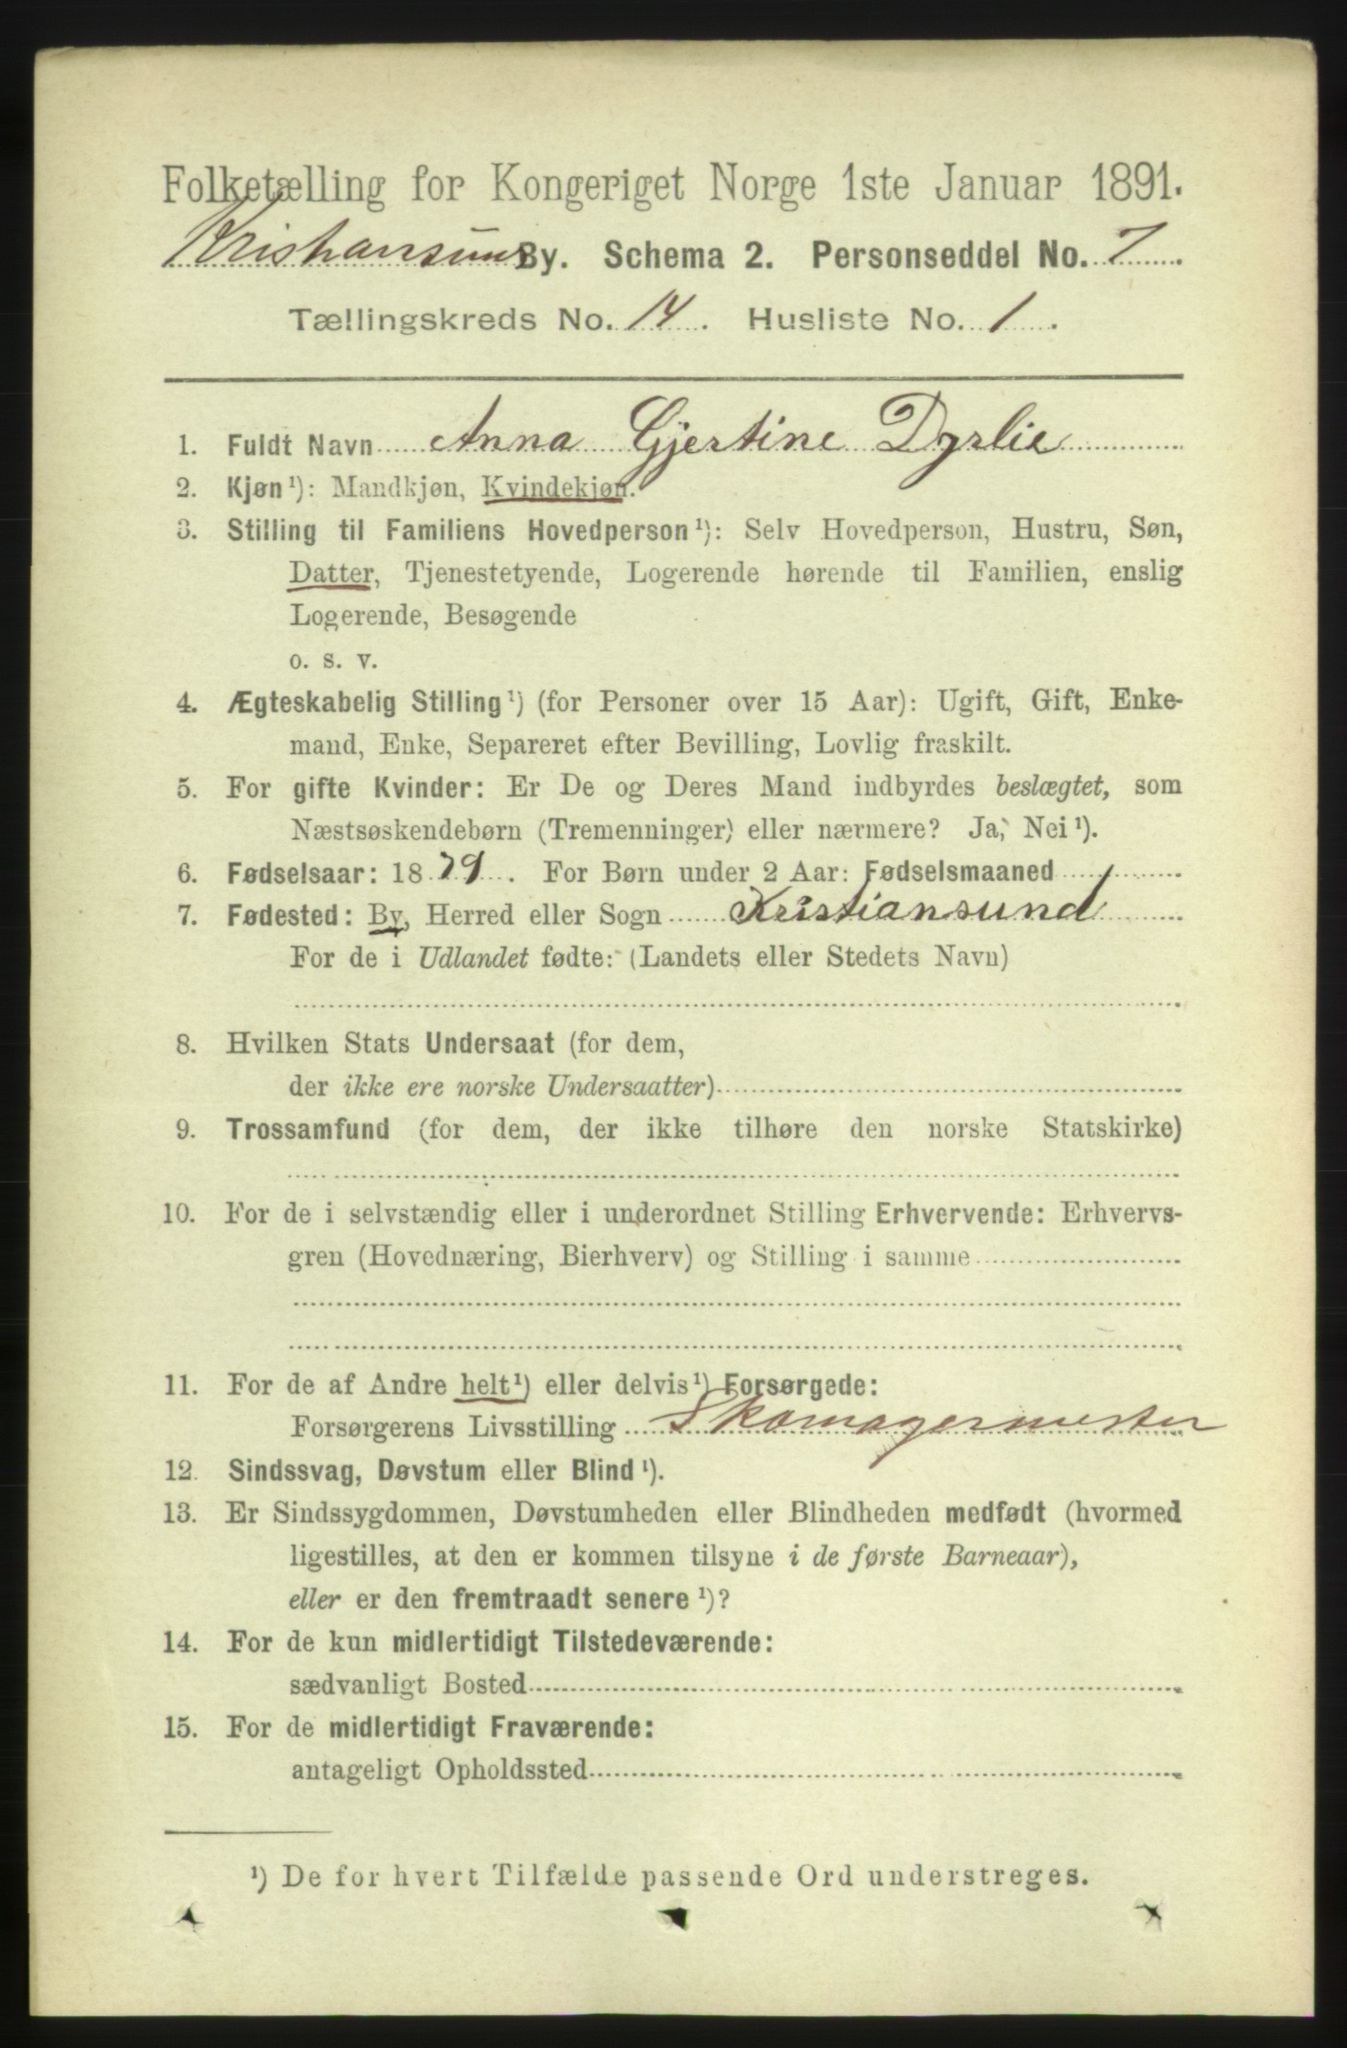 Folketælling for Kongeriget Norge 1ste Januar 1891.
Kristiansund By. Schema 2. Personseddel No. 7
Tællingskreds No. 14. Husliste No. 1.
1. Fuldt Navn Anna Gjertine Dyrlie
2. Kjøn¹): Mandkjøn, Kvindekjøn.
3. Stilling til Familiens Hovedperson¹): Selv Hovedperson, Hustru, Søn,
Datter, Tjenestetyende, Logerende hørende til Familien, enslig
Logerende, Besøgende
o. s. v.
4. Ægteskabelig Stilling¹) (for Personer over 15 Aar): Ugift, Gift, Enke-
mand, Enke, Separeret efter Bevilling, Lovlig fraskilt.
5. For gifte Kvinder: Er De og Deres Mand indbyrdes beslægtet, som
Næstsøskendebørn (Tremenninger) eller nærmere? Ja, Nei¹).
6. Fødselsaar: 1879. For Børn under 2 Aar: Fødselsmaaned
7. Fødested: By, Herred eller Sogn Kristiansund
For de i Udlandet fødte: (Landets eller Stedets Navn)
8. Hvilken Stats Undersaat (for dem,
der ikke ere norske Undersaatter)
9. Trossamfund (for dem, der ikke tilhøre den norske Statskirke)
10. For de i selvstændig eller i underordnet Stilling Erhvervende: Erhvervs-
gren (Hovednæring, Bierhverv) og Stilling i samme
11. For de af Andre helt¹) eller delvis¹) Forsørgede:
Forsørgerens Livsstilling Skomagermester
12. Sindssvag, Døvstum eller Blind¹).
13. Er Sindssygdommen, Døvstumheden eller Blindheden medfødt (hvormed
ligestilles, at den er kommen tilsyne i de første Barneaar),
eller er den fremtraadt senere¹)?
14. For de kun midlertidigt Tilstedeværende:
sædvanligt Bosted
15. For de midlertidigt Fraværende:
antageligt Opholdssted
¹) De for hvert Tilfælde passende Ord understreges.